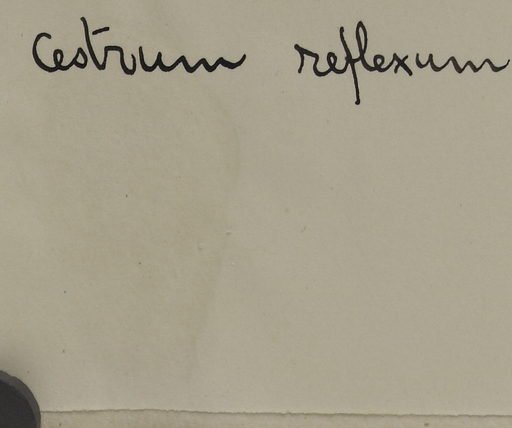 Cestrum reflexum